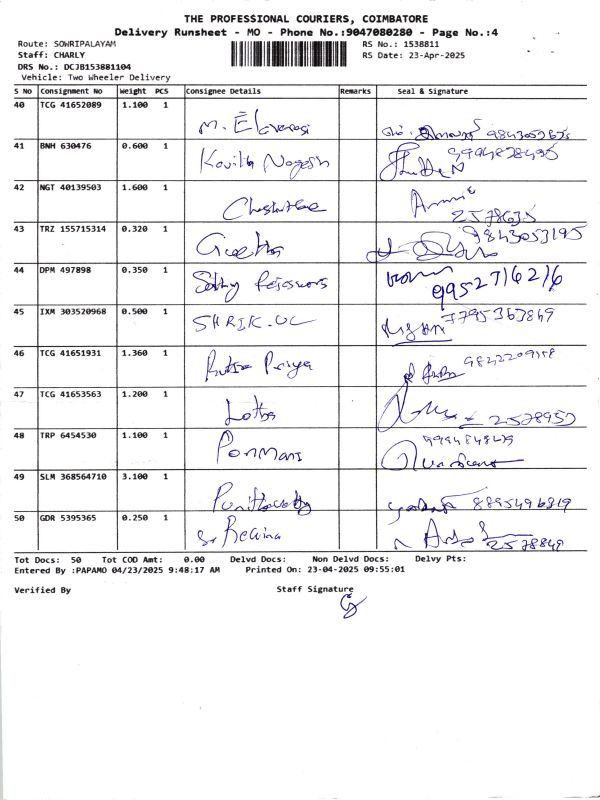 THE PROFESSIONAL COURIERS, COIMBATORE
Delivery Runsheet - MO - Phone No.:9047080280 - Page No.:4
Route: SOWRIPALAYAM RS No.: 1538811
Staff: CHARLY RS Date: 23-Apr-2025
DRS No.: DCJB153881104
Vehicle: Two Wheeler Delivery
S No Consignment No Weight PCS Consignee Details Remarks Seal & Signature
40 TCG 41652089 1.100 1
M.
41 BNH 630476 0.600 1
Kavitha Nagesh
42 NGT 40139503 1.600 1
2578635
43 TRZ 155715314 0.320 1 9843053195
Geetha
44 DPM 497898 0.350 1
9952716216
45 IXM 303520968 0.500 1
SHRIK.UC 7795363849
46 TCG 41651931 1.360 1
Priya
47 TCG 41653563 1.200 1
Latha
48 TRP 6454530 1.100 1
Ponmani
49 SLM 368564710 3.100 1
8895496819
50 GDR 5395365 0.250 1
Sr Regina 2578849
Tot Docs: 50 Tot COD Amt: 0.00 Delvd Docs: Non Delvd Docs: Delvy Pts:
Entered By :PAPAMO 04/23/2025 9:48:17 AM Printed On: 23-04-2025 09:55:01
Verified By Staff Signature